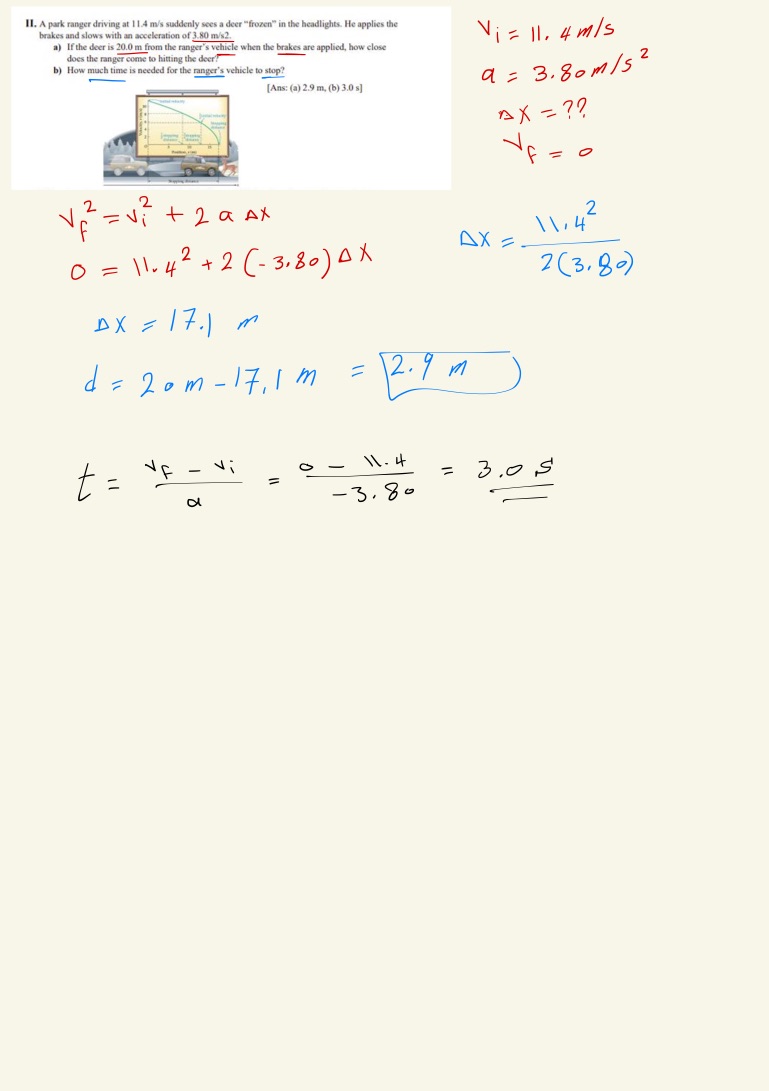 II. A park ranger driving at 11.4 m/s suddenly sees a deer "frozen" in the headlights. He applies the
brakes and slows with an acceleration of 3.80 m/s2.
a) If the deer is 20.0 m from the ranger's vehicle when the brakes are applied, how close
does the ranger come to hitting the deer?
b) How much time is needed for the ranger's vehicle to stop?
[Ans: (a) 2.9 m, (b) 3.0 s]
Vi = 11.4 m/s
a = 3.80 m/s²
Δx = ??
Vf = 0
Vf² = Vi² + 2 a Δx
0 = 11.4² + 2 (-3.80) Δx
Δx = 11.4² / 2(3.80)
Δx = 17.1 m
d = 20 m - 17.1 m = 2.9 m
t = Vf - Vi / a = 0 - 11.4 / -3.80 = 3.0 s